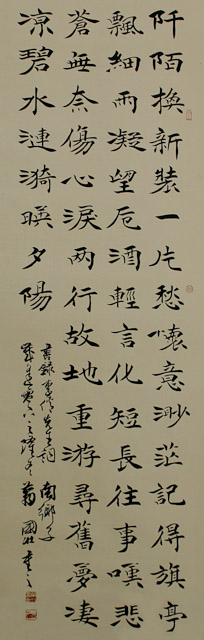 阡陌換新裝一片愁懷意渺茫記得旗亭
飄細雨凝望卮酒輕言化短長往事嘆悲
蒼無奈傷心淚兩行故地重游尋舊夢凄
涼碧水漣漪暎夕陽
南鄉子